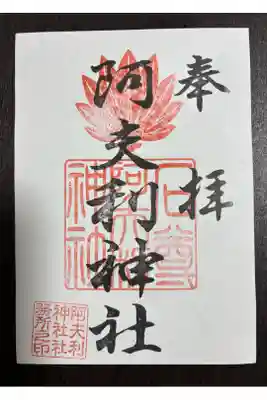 奉拝
阿夫利神社
阿夫利
神社社
務所之印